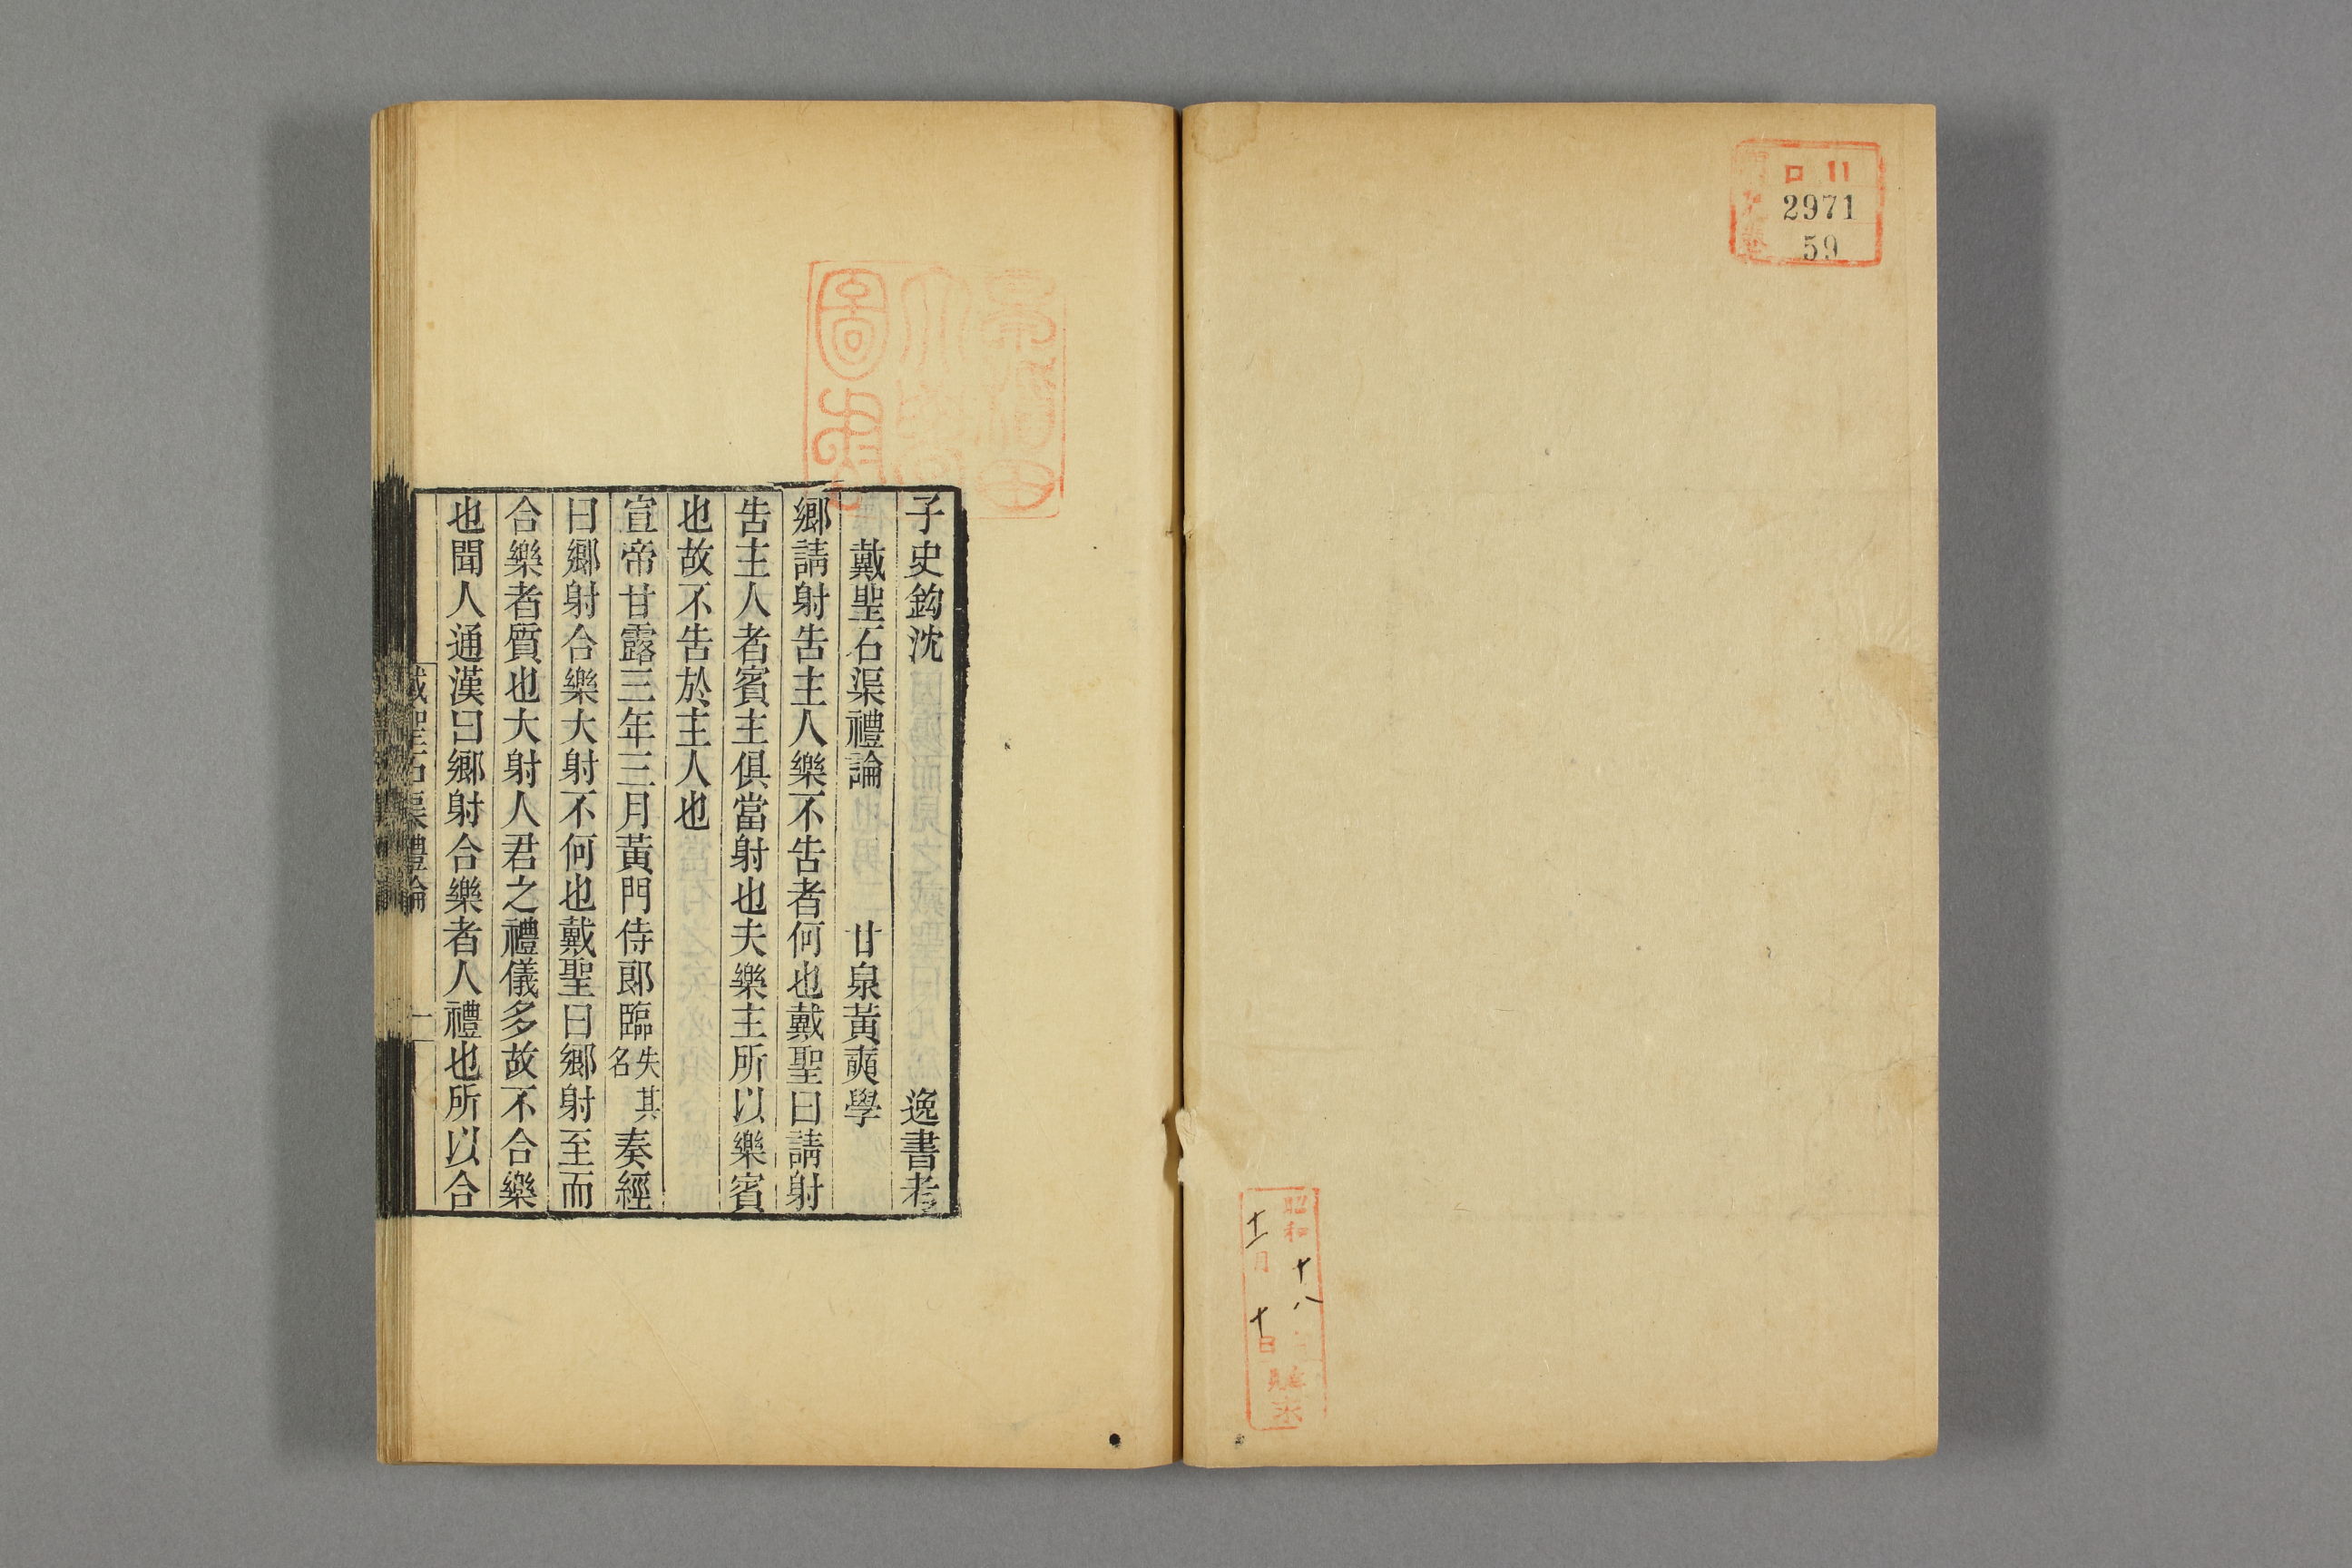 ロ 11
2971
59
昭和十八年
十一月十日
購求
早稲田
大學
圖書
子史鈎沈　逸書考
戴聖石渠禮論　甘泉黃奭學
鄉請射告主人樂不告者何也戴聖曰請射
告主人者賓主俱當射也夫樂主所以樂賓
也故不告於主人也
宣帝甘露三年三月黃門侍郎臨失其名奏經
曰鄉射合樂大射不何也戴聖曰鄉射至而
合樂者質也大射人君之禮儀多故不合樂
也聞人通漢曰鄉射合樂者人禮也所以合
戴聖石渠禮論　一